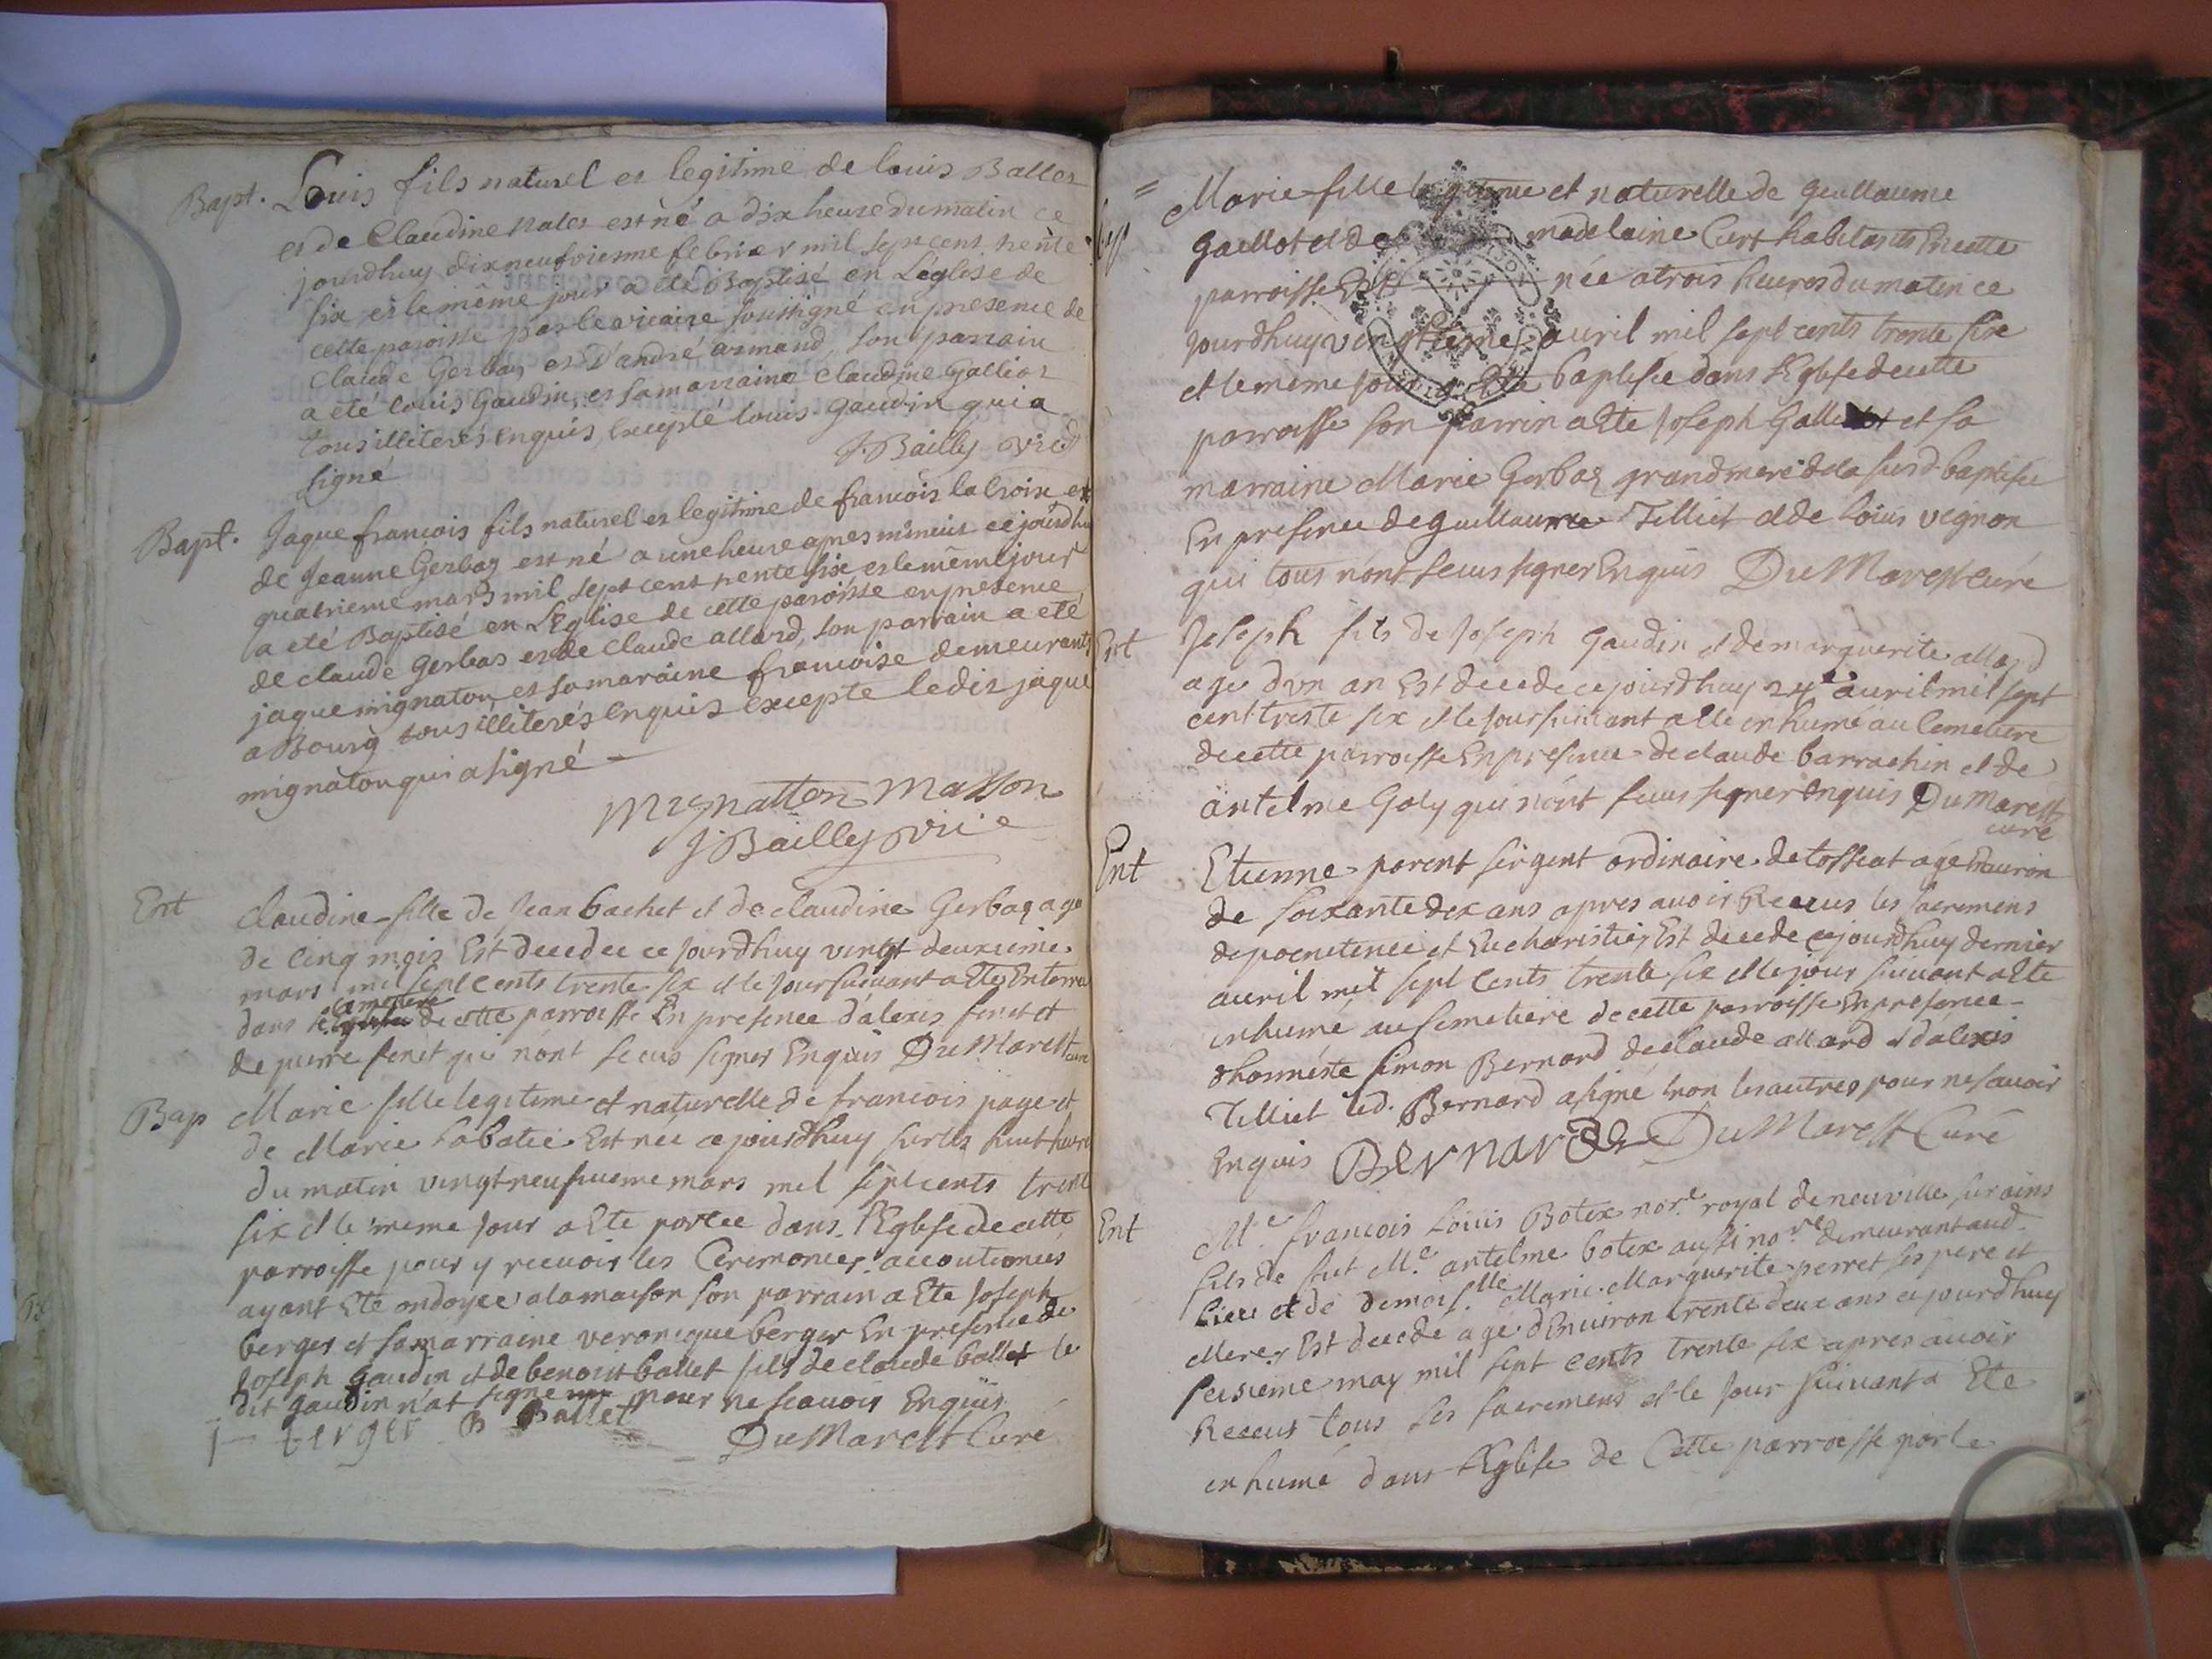 Bapt. Louis fils naturel et legitime de louis Ballet
et de Claudine Nalet est né a dix heure du matin ce
jourdhuy dixneufviesme febrier mil sept cens trente
six et le même jour a eté Baptisé en L'église de
cette paroisse par le vicaire soussigné en presence de
Claude Gerbaz et d'andré armand, son parrain
a eté louis Gaudin, et sa marraine Claudine Galliot
tous illiterés enquis, excepté louis Gaudin qui a
signé J. Bailly vic
Bapt. Jaque francois fils naturel et legitime de francois la Croix et
de Jeanne Gerbaz est né a une heure apres minuit ce jourdhu
quatrieme mars mil sept cent trente six et le même jour
a eté Baptisé en L'Eglise de cette paroisse en presence
de claude Gerbas et de Claude allard, son parrain a eté
jaque mignaton et sa maraine francoise demeurants
a Bourg tous illiterés enquis excepte ledit jaque
mignaton qui a signé
Mignatton Masson
J Bailly vic
Ent Claudine fille de Jean bachet et de claudine Gerbaz age
de Cinq mois Est decedee ce jourdhuy vingt deuxieme
mars mil sept cents trente six et le jour suivant a Ete Enterree
cemetiere
dans le de cette parroisse En presence d'alexis feret et
de pierre feret qui n'ont sceus signer Enquis DuMarest curé
Bap Marie fille legitime et naturelle de francois page et
de Marie Labatie Est née ce jourdhuy sur les huit heure
du matin vingt neufvieme mars mil sept cents trent
six et le meme jour a Ete portee dans l'Eglise de cette
parroisse pour y recevoir les Ceremonies accoutumées
ayant Ete ondoyee a la maison son parrain a Ete Joseph
berger et sa marraine veronique berger En presence de
Joseph Gaudin et de benoit ballet fils de claude ballet le
dit Gaudin n'at signe pour ne scavoir Enquis
J berger B Ballet DuMarest Curé
= Marie fille legitime et naturelle de Guillaume
Gaillot et de madelaine Curt habitants En cette
parroisse Est née a trois heures du matin ce
jourdhuy vingtieme avril mil sept cents trente six
et le meme jour a Ete baptisée dans l'Eglise de cette
parroisse son parrin a Ete Joseph et sa
marraine Marie Gerbaz grand mere de la susd. baptisée
En presence de guillaume Tilliet et de Loius vignon
qui tous n'ont sceus signer Enquis DuMarest Curé
Ent Joseph fils de Joseph Gaudin et de marguerite allard
age d'vn an Est decede ce jourdhuy 24e avril mil sept
cent treste six et le jour suivant a ete inhumé au Cemetiere
de cette parroisse En presence de claude barrachin et de
antelme Goly qui n'ont sceus signer Enquis DuMarest
curé
Ent Etienne parent sergent ordinaire de tossiat agé Environ
de soixante dix ans apres avoir Receus les sacremens
de poenitence et Eucharistie, Est decede ce jourdhuy dernier
avril mil sept Cents trente six et le jour suivant a Ete
inhumé au Cemetiere de cette parroisse En presence
d'honneste simon Bernard de claude allard et d'alexis
Tilliet led. Bernard a signé non les autres pour ne scavoir
Enquis BERNARD DuMarest Curé
Ent Me. francois Louis Botex nore. royal de neuville sur ains
fils de fut Me. antelme botex aussi nore demeurant aud.
Lieu et de demoiselle Marie Marguerite perret ses pere et
Mere, Est decedé age d'Environ trente deux ans ce jourdhuy
seisieme may mil sept cents trente six apres avoir
Receus tous ses sacremens et le jour suivant a Ete
inhumé dans l'Eglise de Cette parroisse par le